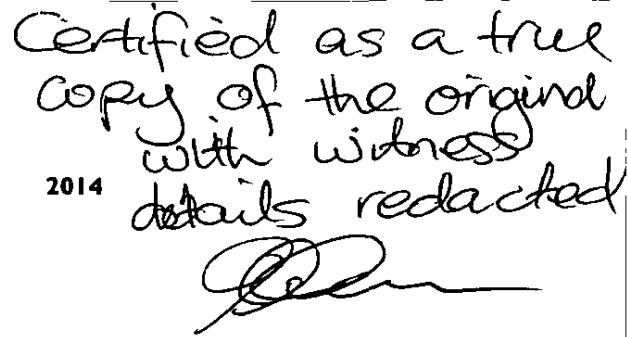 Certified as a true
copy of the original
with witness
2014
details redacted